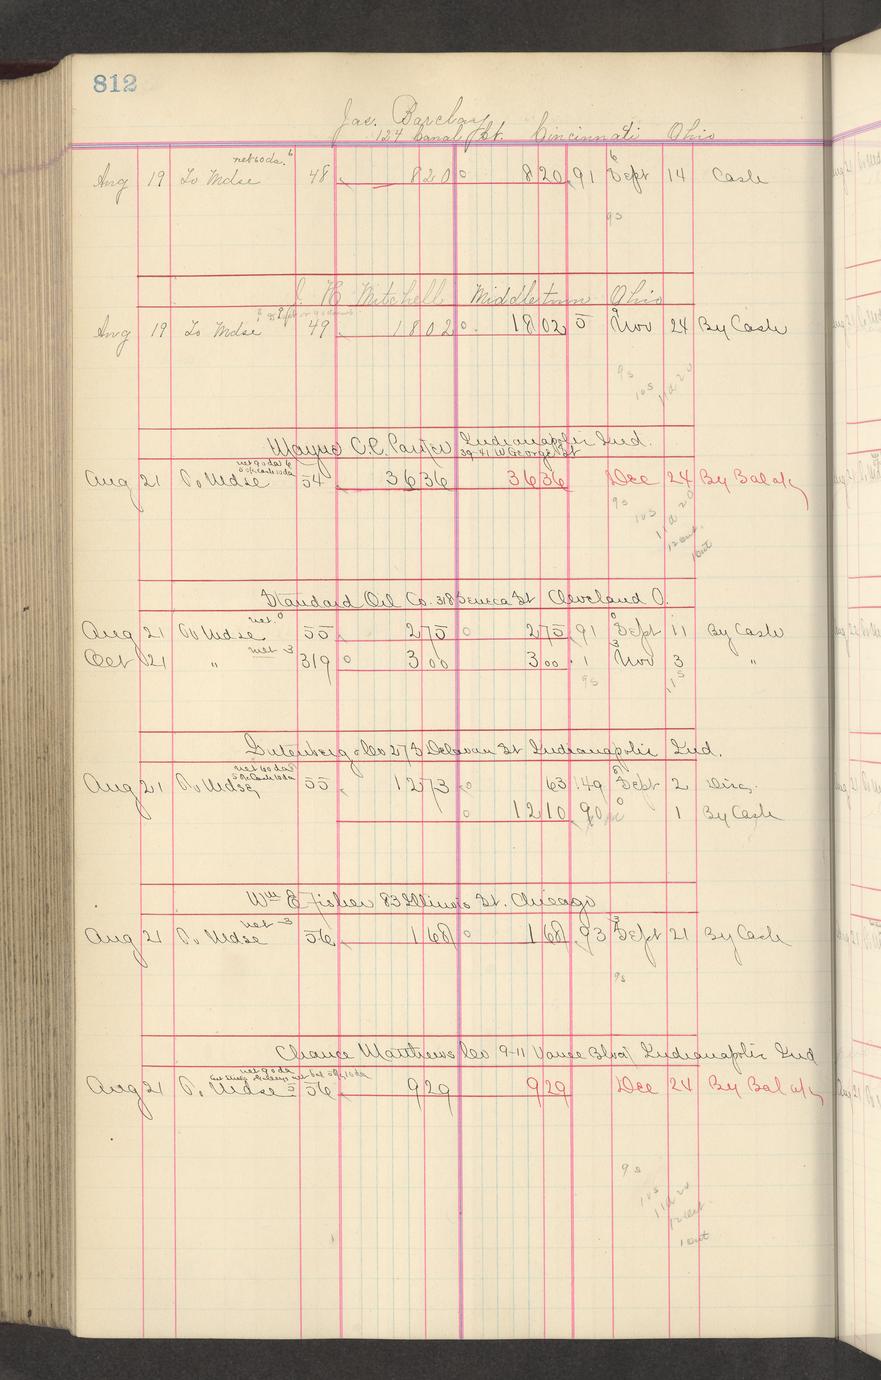 812
Jac. Barclay
124 Canal St. Cincinnati Ohio
net 60 da. 6
Aug 19 To Mdse 48 820 820 91 Sept 14 Cash
9s
J. H. Mitchell Middletown Ohio
Aug 19 To Mdse 49 1802 1802 5 Nov 24 By Cash
9s
10s
11a 20
Wayne C.C. Indianapolis Ind.
39-41 W George St
net 90 da 6
5% Cash 10 da
Aug 21 To Mdse 54 3636 3636 Dec 24 By Bal a/c
9s
10s
11a 20
12 out
1 out
Standard Oil Co. 318 Seneca St Cleveland O.
net 0
Aug 21 To Mdse 55 275 275 91 Sept 11 By Cash
Oct 21 " net 3 319 300 300 1 Nov 3 "
9s
Gutenberg & Co 273 Delavan St Indianapolis Ind.
net 60 da
5% Cash 10 da
Aug 21 To Mdse 55 1273 63 149 Sept 2 Disc.
1210 90 1 By Cash
Wm E Fisher 83 Illinois St. Chicago
net 3
Aug 21 To Mdse 56 168 168 93 Sept 21 By Cash
9s
Chance Matthews Co 9-11 Vance Block Indianapolis Ind
net 90 da
Aug 21 To Mdse 56 929 929 Dec 24 By Bal a/c
9s
10s
11a 20
12 out
1 out